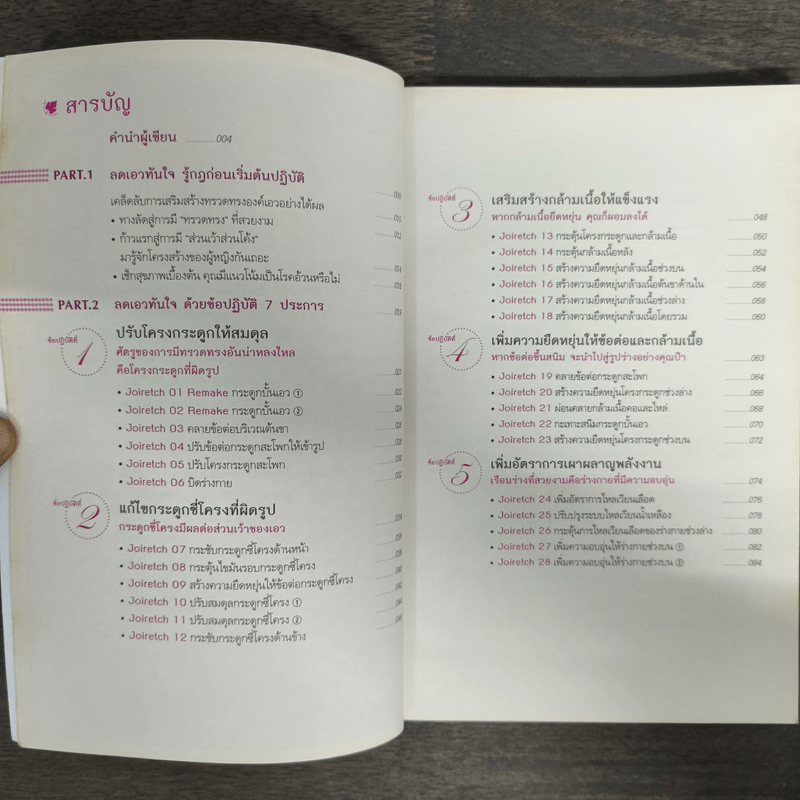 สารบัญ
คำนำผู้เขียน ..........004
PART.1 ลดเอวทันใจ รู้กฎก่อนเริ่มต้นปฏิบัติ
เคล็ดลับการเสริมสร้างทรวดทรงองค์เอวอย่างได้ผล
• ทางลัดสู่การมี "ทรวดทรง" ที่สวยงาม
• ก้าวแรกสู่การมี "ส่วนเว้าส่วนโค้ง" 012
มารู้จักโครงสร้างของผู้หญิงกันเถอะ 014
• เช็กสุขภาพเบื้องต้น คุณมีแนวโน้มเป็นโรคอ้วนหรือไม่
PART.2 ลดเอวทันใจ ด้วยข้อปฏิบัติ 7 ประการ
ข้อปฏิบัติที่ 1 ปรับโครงกระดูกให้สมดุล
ศัตรูของการมีทรวดทรงอันน่าหลงใหล
คือโครงกระดูกที่ผิดรูป
• Joiretch 01 Remake กระดูกบั้นเอว ①
• Joiretch 02 Remake กระดูกบั้นเอว ②
• Joiretch 03 คลายข้อต่อบริเวณต้นขา
• Joiretch 04 ปรับข้อต่อกระดูกสะโพกให้เข้ารูป
• Joiretch 05 ปรับโครงกระดูกสะโพก
• Joiretch 06 บิดร่างกาย
ข้อปฏิบัติที่ 2 แก้ไขกระดูกซี่โครงที่ผิดรูป 034
กระดูกซี่โครงมีผลต่อส่วนเว้าของเอว
• Joiretch 07 กระชับกระดูกซี่โครงด้านหน้า
• Joiretch 08 กระตุ้นไขมันรอบกระดูกซี่โครง
• Joiretch 09 สร้างความยืดหยุ่นให้ข้อต่อกระดูกซี่โครง
• Joiretch 10 ปรับสมดุลกระดูกซี่โครง ①
• Joiretch 11 ปรับสมดุลกระดูกซี่โครง ②
• Joiretch 12 กระชับกระดูกซี่โครงด้านข้าง
ข้อปฏิบัติที่ 3 เสริมสร้างกล้ามเนื้อให้แข็งแรง
หากกล้ามเนื้อยืดหยุ่น คุณก็ผอมลงได้ ..........048
• Joiretch 13 กระตุ้นโครงกระดูกและกล้ามเนื้อ ..........050
• Joiretch 14 กระตุ้นกล้ามเนื้อหลัง ..........052
• Joiretch 15 สร้างความยืดหยุ่นกล้ามเนื้อช่วงบน ..........054
• Joiretch 16 สร้างความยืดหยุ่นกล้ามเนื้อต้นขาด้านใน ..........056
• Joiretch 17 สร้างความยืดหยุ่นกล้ามเนื้อช่วงล่าง ..........058
• Joiretch 18 สร้างความยืดหยุ่นกล้ามเนื้อโดยรวม ..........060
ข้อปฏิบัติที่ 4 เพิ่มความยืดหยุ่นให้ข้อต่อและกล้ามเนื้อ
หากข้อต่อขึ้นสนิม จะนำไปสู่รูปร่างอย่างคุณป้า ..........063
• Joiretch 19 คลายข้อต่อกระดูกสะโพก ..........064
• Joiretch 20 สร้างความยืดหยุ่นโครงกระดูกช่วงล่าง ..........066
• Joiretch 21 ผ่อนคลายกล้ามเนื้อคอและไหล่ ..........068
• Joiretch 22 กะเทาะสนิมกระดูกบั้นเอว ..........070
• Joiretch 23 สร้างความยืดหยุ่นโครงกระดูกช่วงบน ..........072
ข้อปฏิบัติที่ 5 เพิ่มอัตราการเผาผลาญพลังงาน
เรือนร่างที่สวยงามคือร่างกายที่มีความอบอุ่น ..........074
• Joiretch 24 เพิ่มอัตราการไหลเวียนเลือด ..........076
• Joiretch 25 ปรับปรุงระบบไหลเวียนน้ำเหลือง ..........078
• Joiretch 26 กระตุ้นการไหลเวียนเลือดของร่างกายช่วงล่าง ..........080
• Joiretch 27 เพิ่มความอบอุ่นให้ร่างกายช่วงบน ① ..........082
• Joiretch 28 เพิ่มความอบอุ่นให้ร่างกายช่วงบน ② ..........084